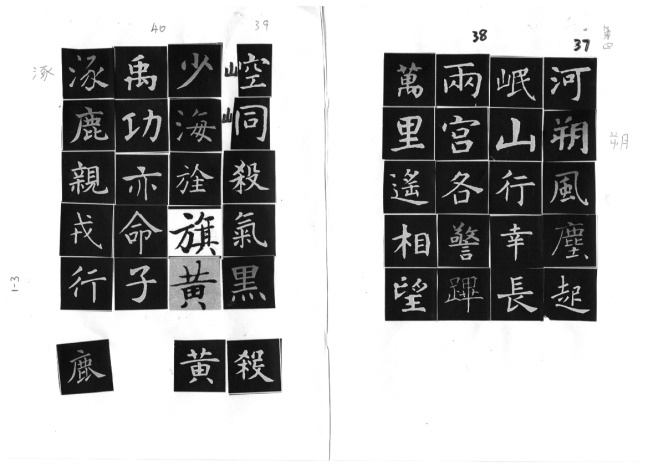 第四
37
河朔風塵起
朔
38
岷山行幸長
兩宮各警蹕
萬里遙相望
39
崆峒殺氣黑
少海旌旗黃
40
禹功亦命子
涿鹿親戎行
涿
1-3
殺
黃
鹿